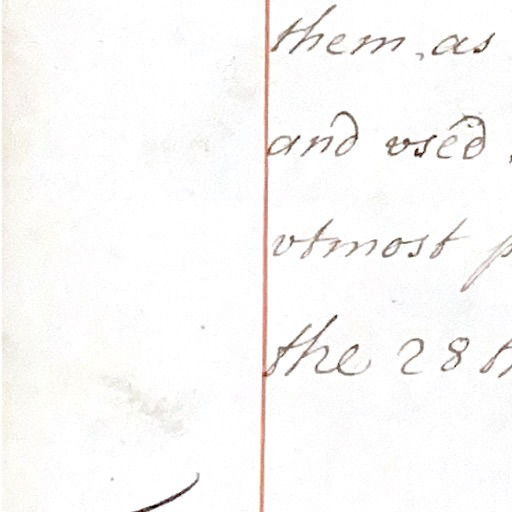 them, as
and vsed
vtmost p
the 28th